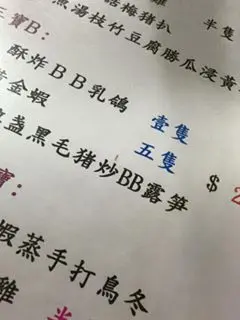 話梅豬扒 半隻
魚湯桂竹豆腐勝瓜浸黃
寶B：
酥炸BB乳鴿 壹隻
黃金蝦 五隻
盞黑毛猪炒BB露笋 $2
寶：
蝦蒸手打烏冬
雞 半